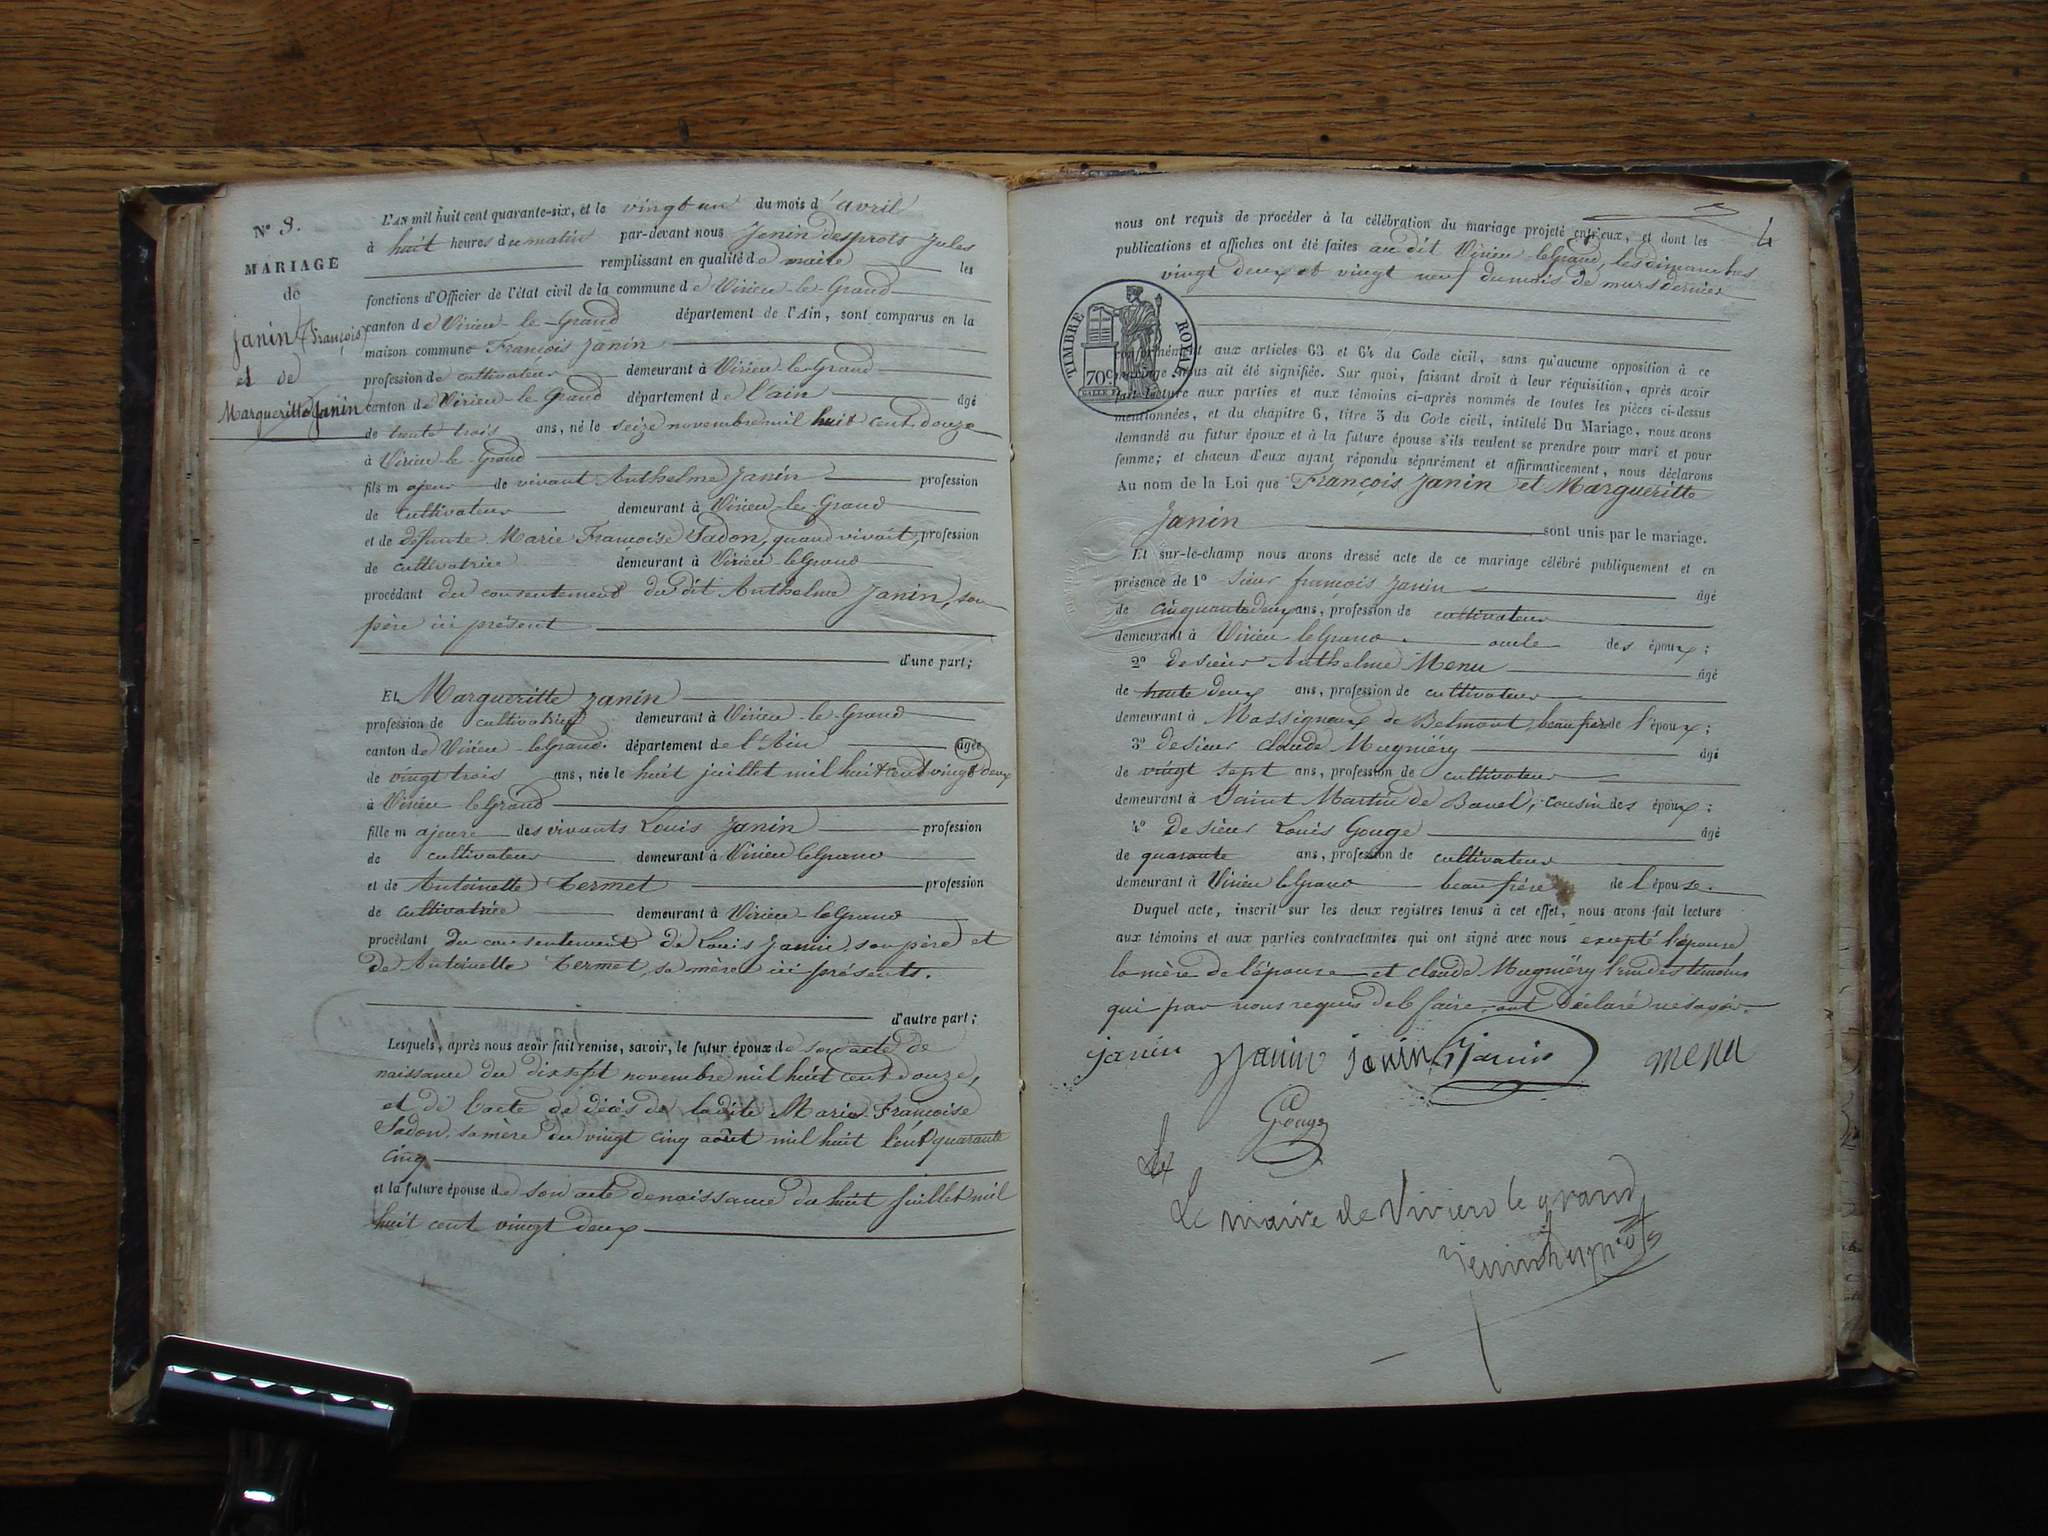 N° 3.
MARIAGE
de
Janin (François)
et de
Margueritte Janin
L'AN mil huit cent quarante-six, et le vingt un du mois d'avril
à huit heures du matin par-devant nous Jenin desprots Jules
remplissant en qualité de maire les
fonctions d'Officier de l'état civil de la commune de Virieu-le-Grand
canton de Virieu-le-Grand département de l'Ain, sont comparus en la
maison commune François Janin
profession de cultivateur demeurant à Virieu-le-Grand
canton de Virieu-le-Grand département de l'ain âgé
de trente trois ans, né le seize novembre mil huit cent douze
à Virieu-le-Grand
fils majeur de vivant Anthelme Janin profession
de cultivateur demeurant à Virieu-le-Grand
et de défunte Marie Françoise Sadon, quand vivait, profession
de cultivatrice demeurant à Virieu-leGrand
procédant du consentement du dit Anthelme Janin, son
père ici présent
d'une part;
Et Margueritte Janin
profession de cultivatrice demeurant à Virieu-le-Grand
canton de Virieu-leGrand. département de l'Ain âgée
de vingt trois ans, née le huit juillet mil huit cent vingt deux
à Virieu leGrand
fille majeure des vivants Louis Janin profession
de cultivateur demeurant à Virieu leGrand
et de Antoinette Termet profession
de cultivatrice demeurant à Virieu-leGrand
procédant du consentement de Louis Janin, son père et
de Antoinette Termet, sa mère ici présents.
d'autre part;
Lesquels, après nous avoir fait remise, savoir, le futur époux de son acte de
naissance du dix sept novembre mil huit cent douze,
et de l'acte de décès de ladite Marie Françoise
Sadon, sa mère du vingt cinq août mil huit cent quarante
cinq
et la future épouse de son acte de naissance du huit juillet mil
huit cent vingt deux
4
nous ont requis de procéder à la célébration du mariage projeté entr'eux, et dont les
publications et affiches ont été faites au dit Virieu-leGrand, les dimanches
vingt deux et vingt neuf du mois de mars dernier
TIMBRE ROYAL
70c
conformément aux articles 63 et 64 du Code civil, sans qu'aucune opposition à ce
mariage nous ait été signifiée. Sur quoi, faisant droit à leur réquisition, après avoir
fait lecture aux parties et aux témoins ci-après nommés de toutes les pièces ci-dessus
mentionnées, et du chapitre 6, titre 5 du Code civil, intitulé Du Mariage, nous avons
demandé au futur époux et à la future épouse s'ils veulent se prendre pour mari et pour
femme; et chacun d'eux ayant répondu séparément et affirmativement, nous déclarons
Au nom de la Loi que François Janin et Margueritte
Janin sont unis par le mariage.
Et sur-le-champ nous avons dressé acte de ce mariage célébré publiquement et en
présence de 1° sieur françois Janin âgé
de cinquante deux ans, profession de cultivateur
demeurant à Virieu leGrand. oncle des époux;
2° de sieur Anthelme Menu âgé
de trente deux ans, profession de cultivateur
demeurant à Massignieux de Belmont, beau frère de l'époux;
3° de sieur claude Mugniéry âgé
de vingt sept ans, profession de cultivateur
demeurant à Saint Martin de Bavel, cousin des époux;
4° de sieur Louis Gouge âgé
de quarante ans, profession de cultivateur
demeurant à Virieu leGrand beau frère de l'épouse.
Duquel acte, inscrit sur les deux registres tenus à cet effet, nous avons fait lecture
aux témoins et aux parties contractantes qui ont signé avec nous excepté l'épouse
la mère de l'épouse et claude Mugniéry l'un des témoins
qui par nous requis de le faire ont déclaré ne savoir.
janin Janin janin fjanin menu
Gouge
Le
Le maire de Virieu le grand
Jenindesprots